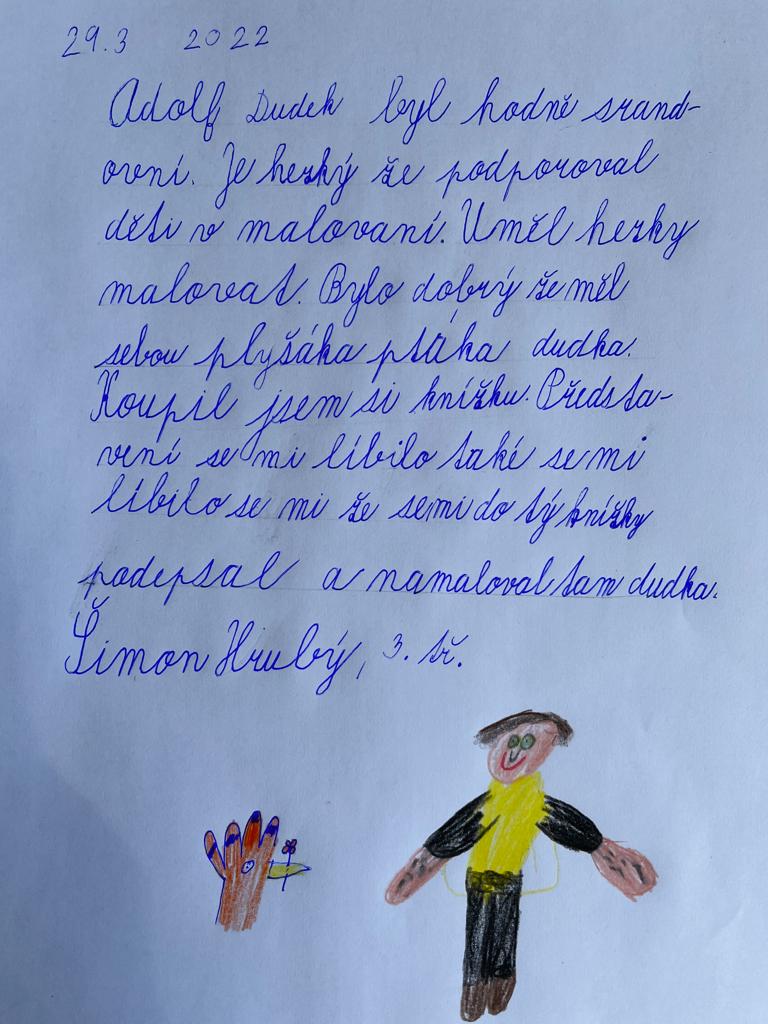 29.3 2022
Adolf Dudek byl hodně srand-
ovní. Je hezký že podporoval
děti v malovaní. Uměl hezky
malovat. Bylo dobrý že měl
sebou plyšáka ptáka dudka.
Koupil jsem si knížku. Předsta-
vení se mi líbilo také se mi
líbilo se mi že semi do tý knížky
podepsal a namaloval tam dudka.
Šimon Hrubý, 3. tř.